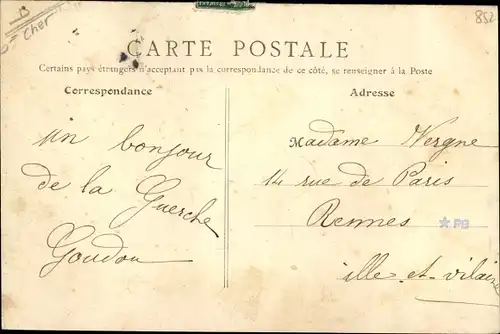 B
Cher
852
CARTE POSTALE
Certains pays étrangers n'acceptant pas la correspondance de ce côté, se renseigner à la Poste
Correspondance
Adresse
un bonjour
de la Guerche
Goudou
Madame Vergne
14 rue de Paris
Rennes
★PB
ille-et-vilaine